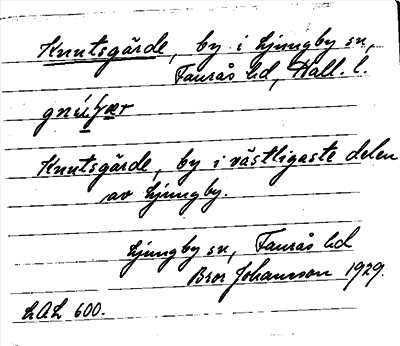 Knutsgärde, by i Ljungby sn,
Faurås hd, Hall. l.
Knutsgärde, by i västligaste delen
av Ljungby.
Ljungby sn, Faurås hd
Bror Johansson 1929.
LAL 600.